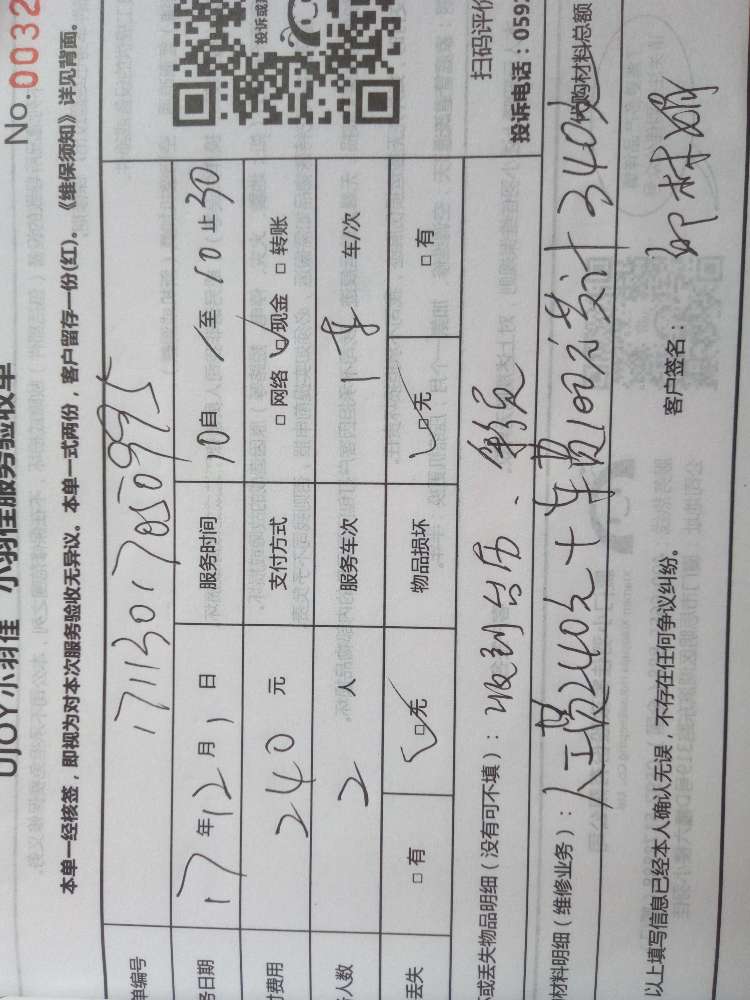 No.0032
UJOY小羽佳 小羽佳服务验收单
本单一经核签，即视为对本次服务验收无异议。本单一式两份，客户留存一份(红)。《维保须知》详见背面。
投诉或
扫码评价
投诉电话：059
单编号 171130170509995
务日期 17年12月1日 服务时间 10自 / 至 10止30
付费用 240元 支付方式 □ 网络 ☑现金 □ 转账
务人数 2 人 服务车次 1车 车/次
丢失 □ 有 ☑无 物品损坏 ☑无 □ 有
坏或丢失物品明细（没有可不填）：收到台历、
材料明细（维修业务）：人工费240元+车费100元共计340元
代购材料总额
以上填写信息已经本人确认无误，不存在任何争议纠纷。 客户签名：